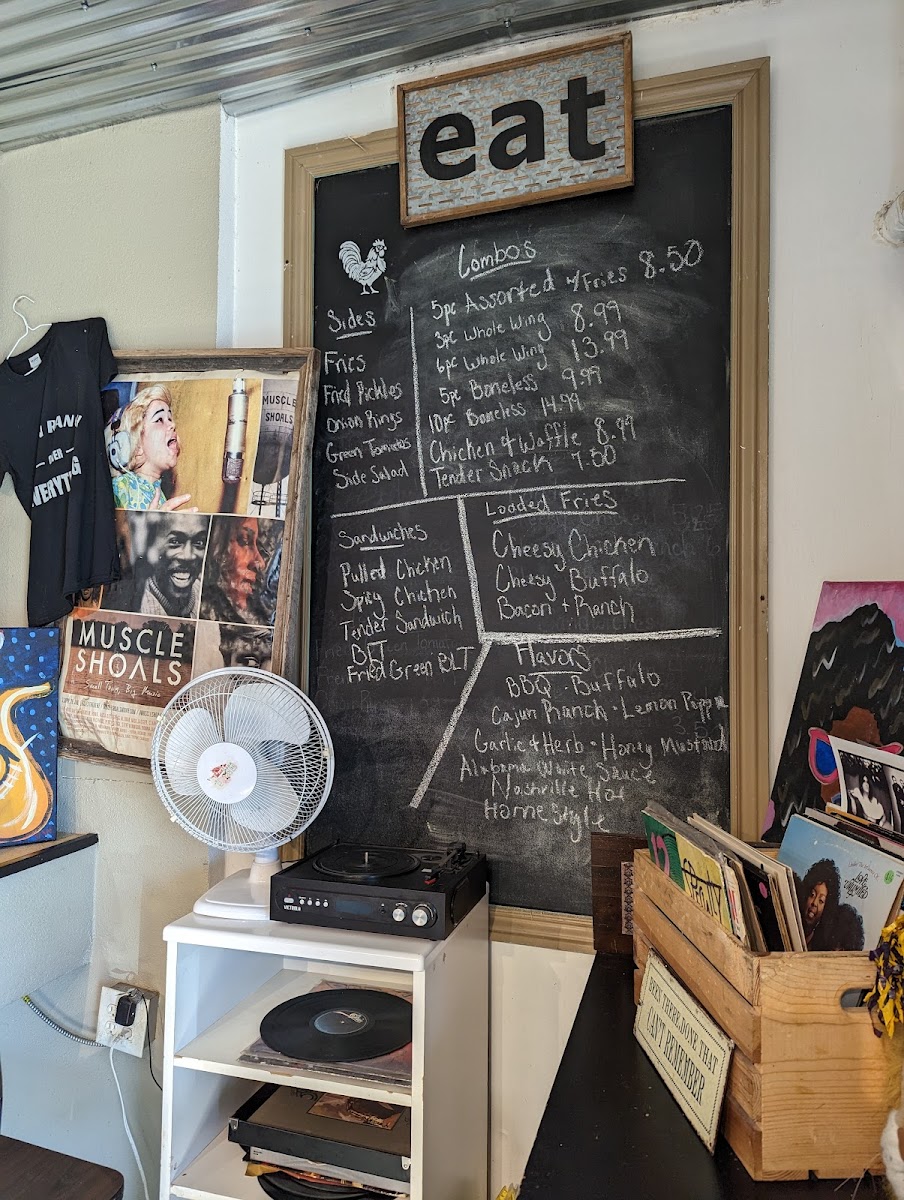 eat
Combos
5pc Assorted w/Fries 8.50
3pc Whole Wing 8.99
6pc Whole Wing 13.99
5pc Boneless 9.99
10pc Boneless 14.99
Chicken & Waffle 8.99
Tender Snack 7.50
Sides
Fries
Fried Pickles
Onion Rings
Green Tomatoes
Side Salad
Sandwiches
Pulled Chicken
Spicy Chicken
Tender Sandwich
BLT
Fried Green BLT
Loaded Fries
Cheesy Chicken
Cheesy Buffalo
Bacon + Ranch
Flavors
BBQ · Buffalo
Cajun Ranch · Lemon Pepper
Garlic & Herb · Honey Mustard
Alabama White Sauce
Nashville Hot
Homestyle
MUSCLE
SHOALS
MUSCLE
SHOALS
Small Town, Big Music
VICTROLA
BEEN THERE, DONE THAT
CAN'T REMEMBER